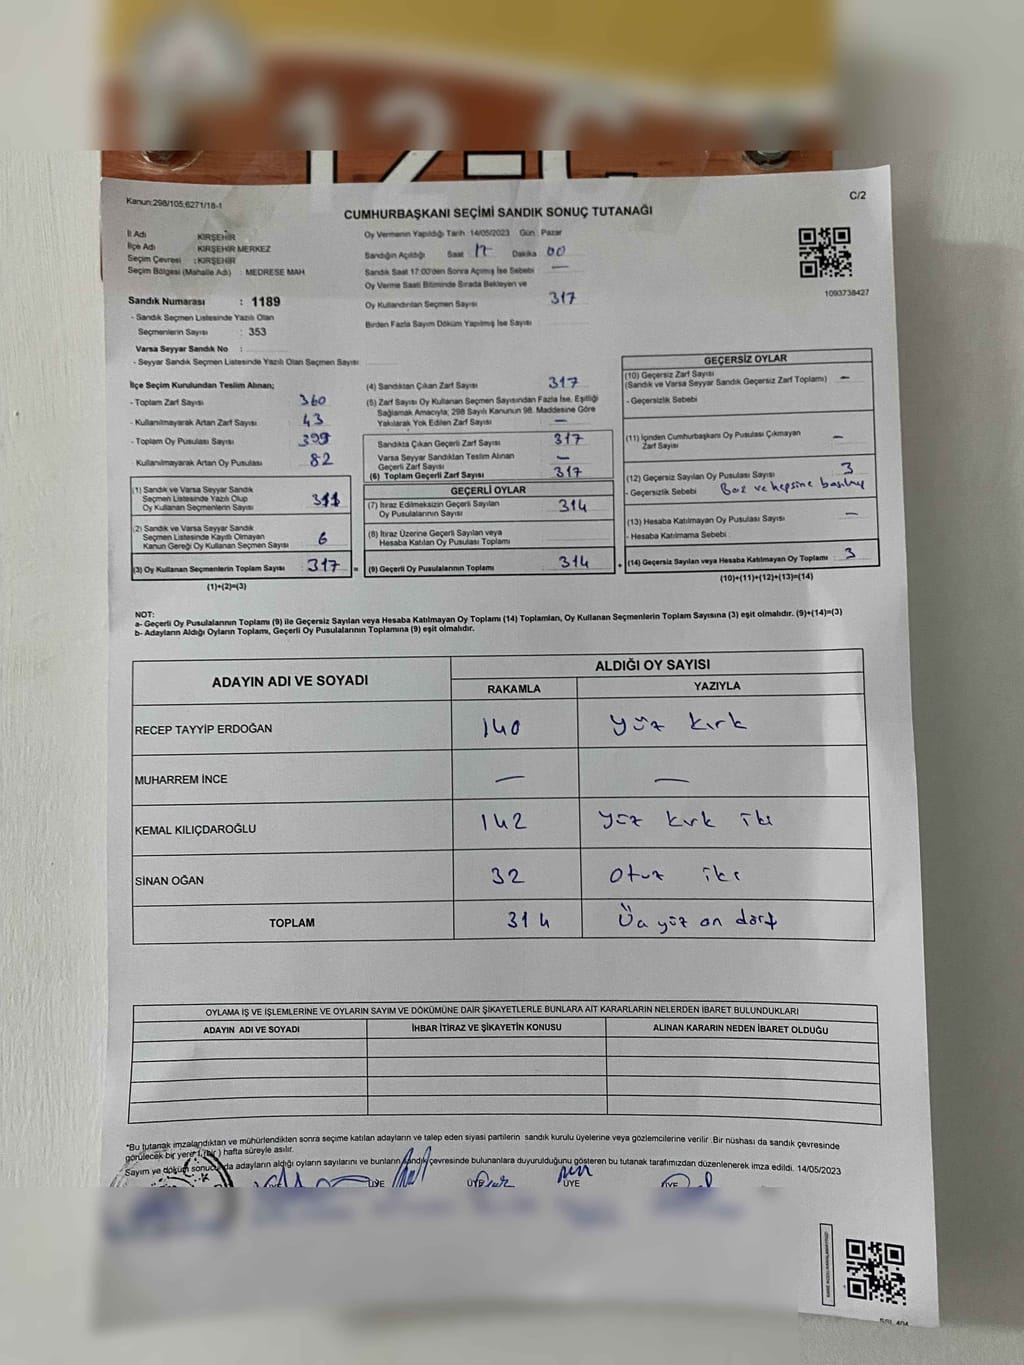 12-C
Kanun:298/105;6271/18-1
C/2
CUMHURBAŞKANI SEÇİMİ SANDIK SONUÇ TUTANAĞI
İl Adı KIRŞEHİR
İlçe Adı KIRŞEHİR MERKEZ
Seçim Çevresi : KIRŞEHİR
Seçim Bölgesi (Mahalle Adı) : MEDRESE MAH
Sandık Numarası : 1189
- Sandık Seçmen Listesinde Yazılı Olan
Seçmenlerin Sayısı : 353
Varsa Seyyar Sandık No :
- Seyyar Sandık Seçmen Listesinde Yazılı Olan Seçmen Sayısı
Oy Vermenin Yapıldığı Tarih :14/05/2023 Gün: Pazar
Sandığın Açıldığı Saat 17 Dakika 00
Sandık Saat 17:00'den Sonra Açılmış İse Sebebi —
Oy Verme Saati Bitiminde Sırada Bekleyen ve
Oy Kullandırılan Seçmen Sayısı 317
Birden Fazla Sayım Döküm Yapılmış İse Sayısı
1093738427
İlçe Seçim Kurulundan Teslim Alınan;
- Toplam Zarf Sayısı 360
- Kullanılmayarak Artan Zarf Sayısı 43
- Toplam Oy Pusulası Sayısı 399
- Kullanılmayarak Artan Oy Pusulası 82
(1) Sandık ve Varsa Seyyar Sandık
Seçmen Listesinde Yazılı Olup
Oy Kullanan Seçmenlerin Sayısı 311
(2) Sandık ve Varsa Seyyar Sandık
Seçmen Listesinde Kayıtlı Olmayan
Kanun Gereği Oy Kullanan Seçmen Sayısı 6
(3) Oy Kullanan Seçmenlerin Toplam Sayısı 317 =
(1)+(2)=(3)
(4) Sandıktan Çıkan Zarf Sayısı 317
(5) Zarf Sayısı Oy Kullanan Seçmen Sayısından Fazla İse, Eşitliği
Sağlamak Amacıyla; 298 Sayılı Kanunun 98. Maddesine Göre
Yakılarak Yok Edilen Zarf Sayısı —
Sandıkta Çıkan Geçerli Zarf Sayısı 317
Varsa Seyyar Sandıktan Teslim Alınan
Geçerli Zarf Sayısı —
(6) Toplam Geçerli Zarf Sayısı 317
GEÇERLİ OYLAR
(7) İtiraz Edilmeksizin Geçerli Sayılan
Oy Pusulalarının Sayısı 314
(8) İtiraz Üzerine Geçerli Sayılan veya
Hesaba Katılan Oy Pusulası Toplamı
(9) Geçerli Oy Pusulalarının Toplamı 314 +
GEÇERSİZ OYLAR
(10) Geçersiz Zarf Sayısı
(Sandık ve Varsa Seyyar Sandık Geçersiz Zarf Toplamı) —
- Geçersizlik Sebebi
(11) İçinden Cumhurbaşkanı Oy Pusulası Çıkmayan
Zarf Sayısı —
(12) Geçersiz Sayılan Oy Pusulası Sayısı 3
- Geçersizlik Sebebi Boş ve hepsine basılmış
(13) Hesaba Katılmayan Oy Pusulası Sayısı —
- Hesaba Katılmama Sebebi
(14) Geçersiz Sayılan veya Hesaba Katılmayan Oy Toplamı 3
(10)+(11)+(12)+(13)=(14)
NOT:
a- Geçerli Oy Pusulalarının Toplamı (9) ile Geçersiz Sayılan veya Hesaba Katılmayan Oy Toplamı (14) Toplamları, Oy Kullanan Seçmenlerin Toplam Sayısına (3) eşit olmalıdır. (9)+(14)=(3)
b- Adayların Aldığı Oyların Toplamı, Geçerli Oy Pusulalarının Toplamına (9) eşit olmalıdır.
ADAYIN ADI VE SOYADI ALDIĞI OY SAYISI
RAKAMLA YAZIYLA
RECEP TAYYİP ERDOĞAN 140 Yüz kırk
MUHARREM İNCE — —
KEMAL KILIÇDAROĞLU 142 Yüz kırk iki
SİNAN OĞAN 32 Otuz iki
TOPLAM 314 Üç yüz on dört
OYLAMA İŞ VE İŞLEMLERİNE VE OYLARIN SAYIM VE DÖKÜMÜNE DAİR ŞİKAYETLERLE BUNLARA AİT KARARLARIN NELERDEN İBARET BULUNDUKLARI
ADAYIN ADI VE SOYADI İHBAR İTİRAZ VE ŞİKAYETİN KONUSU ALINAN KARARIN NEDEN İBARET OLDUĞU
*Bu tutanak imzalandıktan ve mühürlendikten sonra seçime katılan adayların ve talep eden siyasi partilerin sandık kurulu üyelerine veya gözlemcilerine verilir. Bir nüshası da sandık çevresinde
görülecek bir yere 1 (bir) hafta süreyle asılır.
Sayım ve döküm sonucunda adayların aldığı oyların sayılarını ve bunların sandık çevresinde bulunanlara duyurulduğunu gösteren bu tutanak tarafımızdan düzenlenerek imza edildi. 14/05/2023
ÜYE ÜYE ÜYE ÜYE